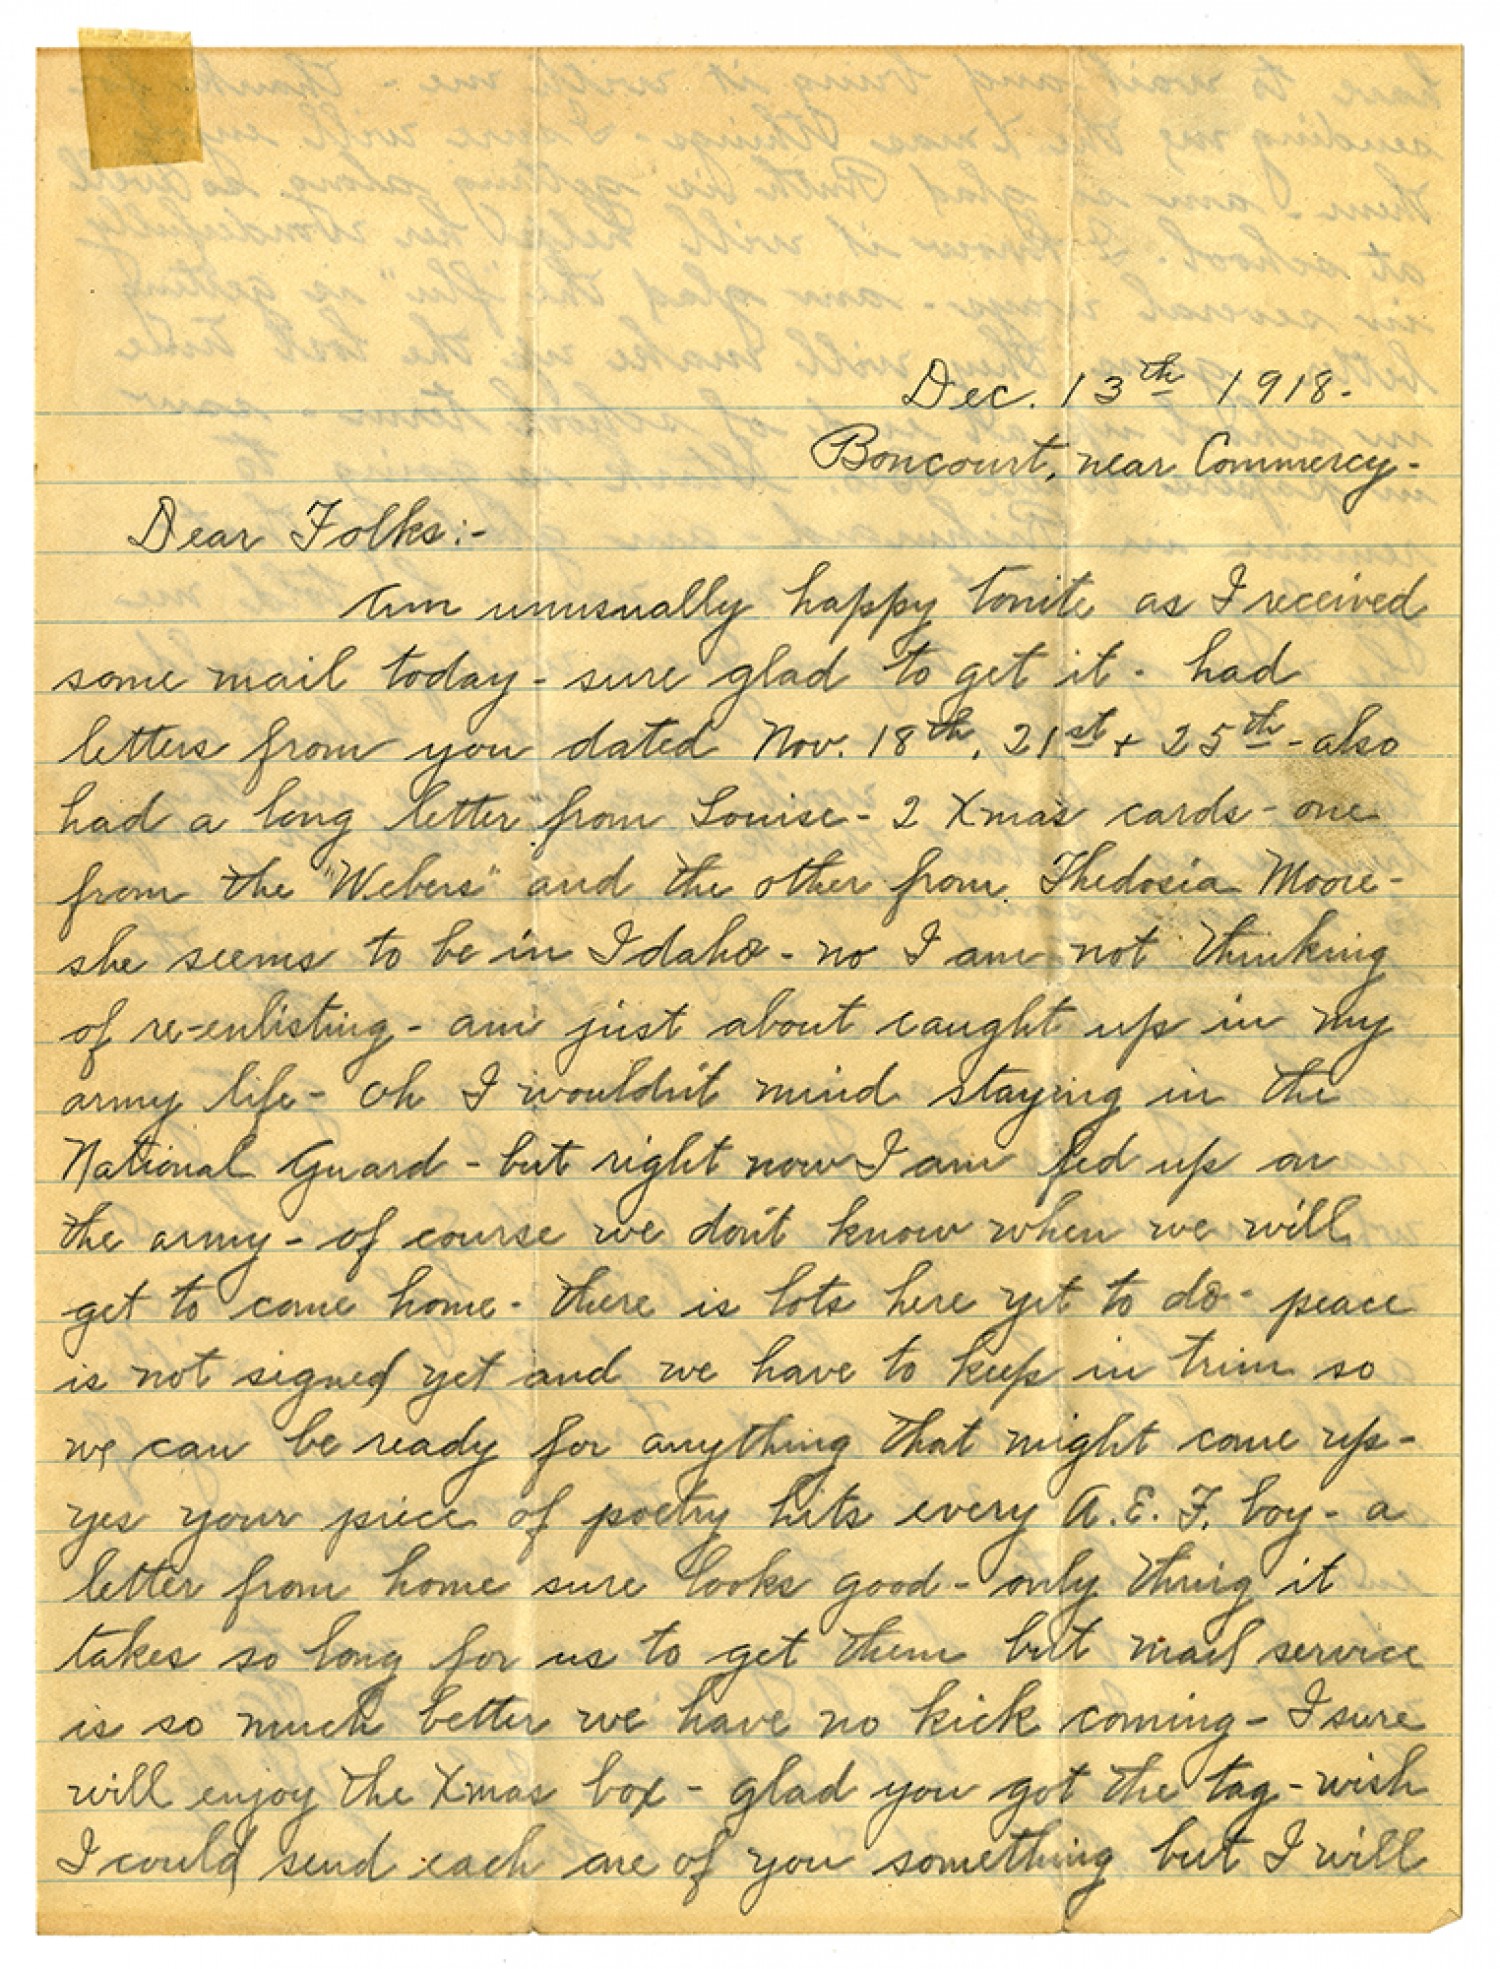 Dec. 13th 1918.
Boncourt, near Commercy-
Dear Folks:-
Am unusually happy tonite as I received
some mail today - sure glad to get it - had
letters from you dated Nov. 18th, 21st + 25th - also
had a long letter from Louise - 2 Xmas cards - one
from the "Webers" and the other from Thedosia Moore -
she seems to be in Idaho - no I am not thinking
of re-enlisting - am just about caught up in my
army life - oh I wouldn't mind staying in the
National Guard - but right now I am fed up on
the army - of course we don't know when we will
get to come home - there is lots here yet to do - peace
is not signed yet and we have to keep in trim so
we can be ready for anything that might come up -
yes your piece of poetry hits every A.E.F. boy - a
letter from home sure looks good - only thing it
takes so long for us to get them but mail service
is so much better we have no kick coming - I sure
will enjoy the Xmas box - glad you got the tag - wish
I could send each one of you something but I will